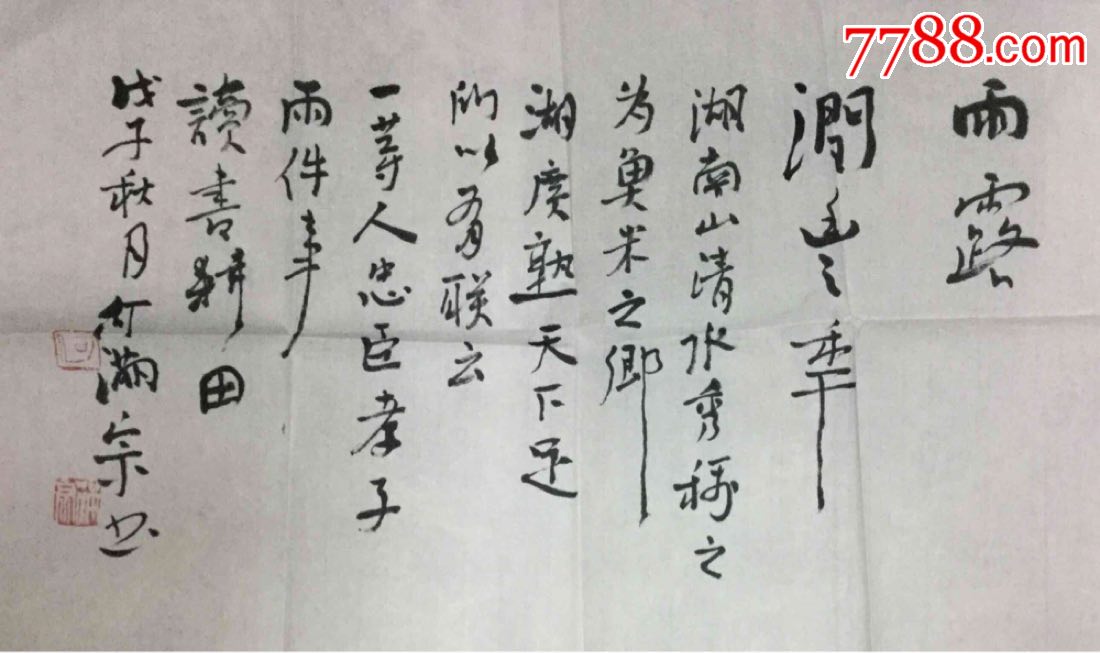 7788.com
雨露
潤豐年
湖南山清水秀称之
为魚米之鄉
湖廣熟天下足
所以有联云
一等人忠臣孝子
兩件事
讀書耕田
戊子秋月何滿宗书